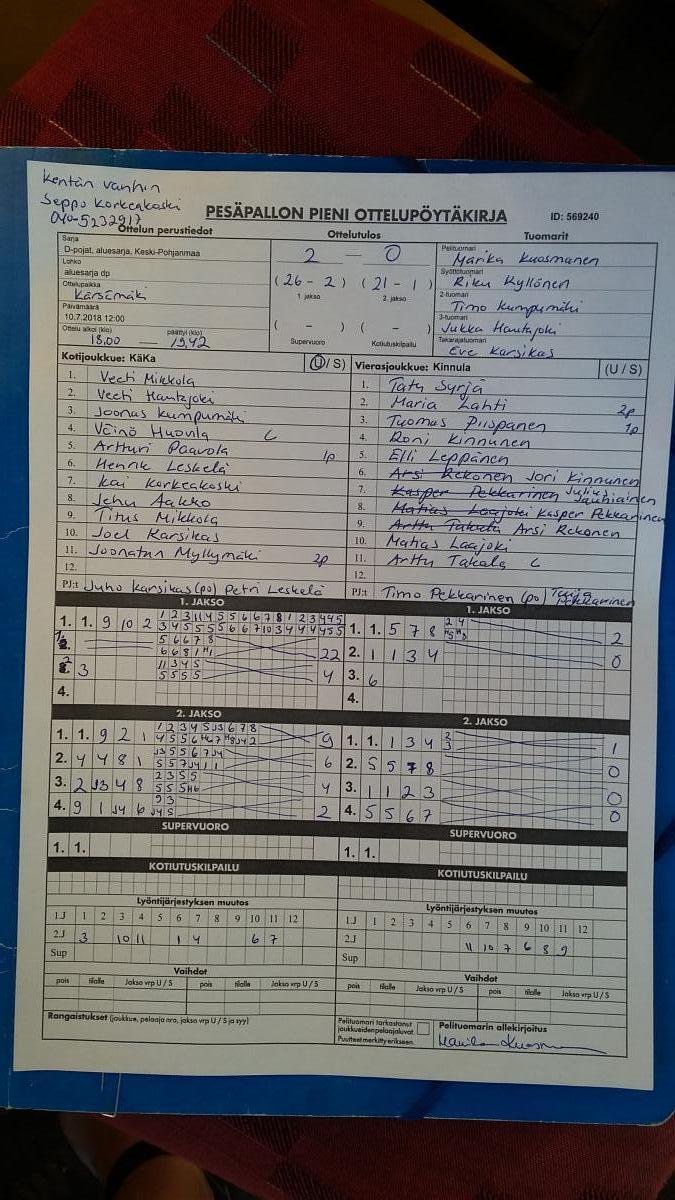 Kentän vanhin
Seppo Korkeakoski
040-5232917
PESÄPALLON PIENI OTTELUPÖYTÄKIRJA ID: 569240
Ottelun perustiedot Ottelutulos Tuomarit
Sarja
D-pojat, aluesarja, Keski-Pohjanmaa
Lohko
aluesarja dp
Ottelupaikka
Kärsämäki
Päivämäärä
10.7.2018 12:00
Ottelu alkoi (klo) päättyi (klo)
18.00 — 19.42
2 — 0
(26 - 2) (21 - 1)
1. jakso 2. jakso
( - ) ( - )
Supervuoro Kotiutuskilpailu
Pelituomari
Marika Kuosmanen
Syöttötuomari
Riku Kyllönen
2-tuomari
Timo Kumpumäki
3-tuomari
Jukka Hautajoki
Takarajatuomari
Eve Karsikas
Kotijoukkue: KäKa (U / S)
1. Veeti Mikkola
2. Veeti Hautajoki
3. Joonas Kumpumäki
4. Väinö Huovla C
5. Artturi Paavola 1p
6. Henrik Leskelä
7. Kai Korkeakoski
8. Jehu Aakko
9. Titus Mikkola
10. Joel Karsikas
11. Joonatan Myllymäki 2p
12.
PJ:t Juho Karsikas (po) Petri Leskelä
Vierasjoukkue: Kinnula (U / S)
1. Tatu Syrjä
2. Maria Lahti 2p
3. Tuomas Piispanen 1p
4. Roni Kinnunen
5. Elli Leppänen
6. Arsi Rekonen Jori Kinnunen
7. Kasper Pekkarinen Jauhiainen
8. Matias Laajoki Kasper Pekkarinen
9. Arttu Takala Arsi Rekonen
10. Matias Laajoki
11. Arttu Takala C
12.
PJ:t Timo Pekkarinen (po) Pekkarinen
1. JAKSO
1. 1. 9 10 2
22
3 4
4.
1. JAKSO
1. 1. 5 7 8 2
2. 1 1 3 4 0
3. 6
4.
2. JAKSO
1. 1. 9 2 1 9
2. 4 4 8 1 6
3. 2 J3 4 8 4
4. 9 1 J4 6 2
2. JAKSO
1. 1. 1 3 4 2 3 1
2. 5 5 7 8 0
3. 1 1 2 3 0
4. 5 5 6 7 0
SUPERVUORO
1. 1.
SUPERVUORO
1. 1.
KOTIUTUSKILPAILU
KOTIUTUSKILPAILU
Lyöntijärjestyksen muutos
1.J 1 2 3 4 5 6 7 8 9 10 11 12
2.J 3 10 11 1 4 6 7
Sup
Lyöntijärjestyksen muutos
1.J 1 2 3 4 5 6 7 8 9 10 11 12
2.J 11 10 7 6 8 9
Sup
Vaihdot
pois tilalle Jakso vrp U / S pois tilalle Jakso vrp U / S
Vaihdot
pois tilalle Jakso vrp U / S pois tilalle Jakso vrp U / S
Rangaistukset (joukkue, pelaaja nro, jakso vrp U / S ja syy)
Pelituomari tarkastanut
joukkueiden pelaajaluvat.
Puutteet merkitty erikseen.
Pelituomarin allekirjoitus